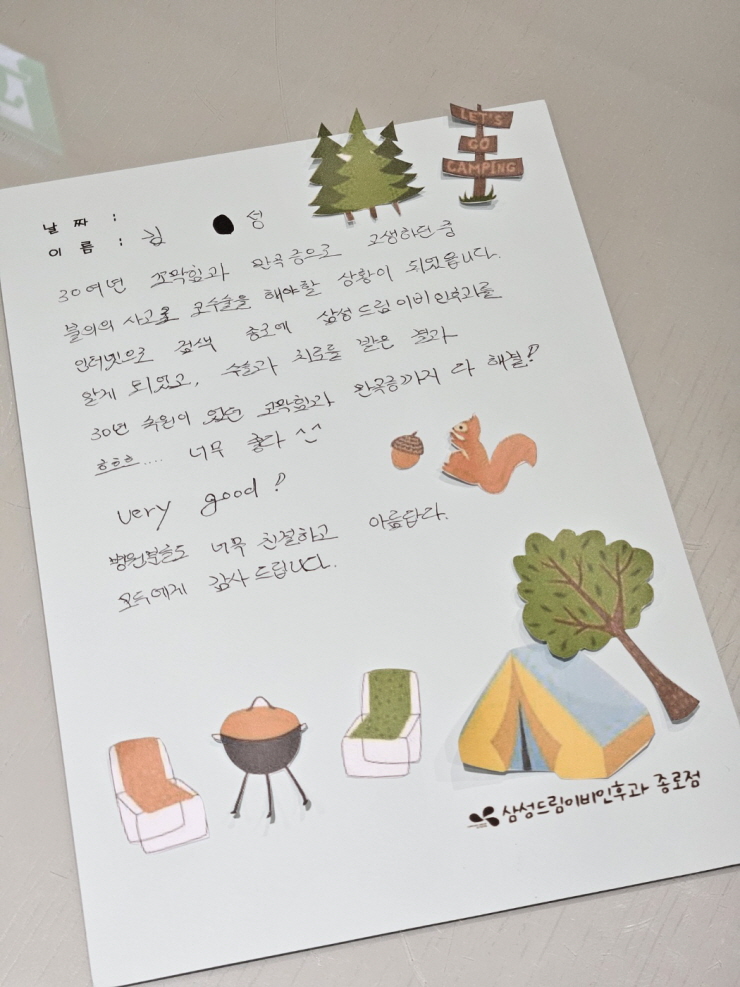 LET'S
GO
CAMPING
날 짜 :
이 름 : 김 성
30여년 코막힘과 만곡증으로 고생하던 중
불의의 사고로 코수술을 해야할 상황이 되었습니다.
인터넷으로 검색 종로에 삼성드림이비인후과를
알게 되었고, 수술과 치료를 받은 결과
30년 숙원이 었던 코막힘과 만곡증까지 다 해결!
ㅎㅎㅎ.... 너무 좋다 ^^
very good!
병원분들도 너무 친절하고 아름답다.
모두에게 감사드립니다.
삼성드림이비인후과 종로점